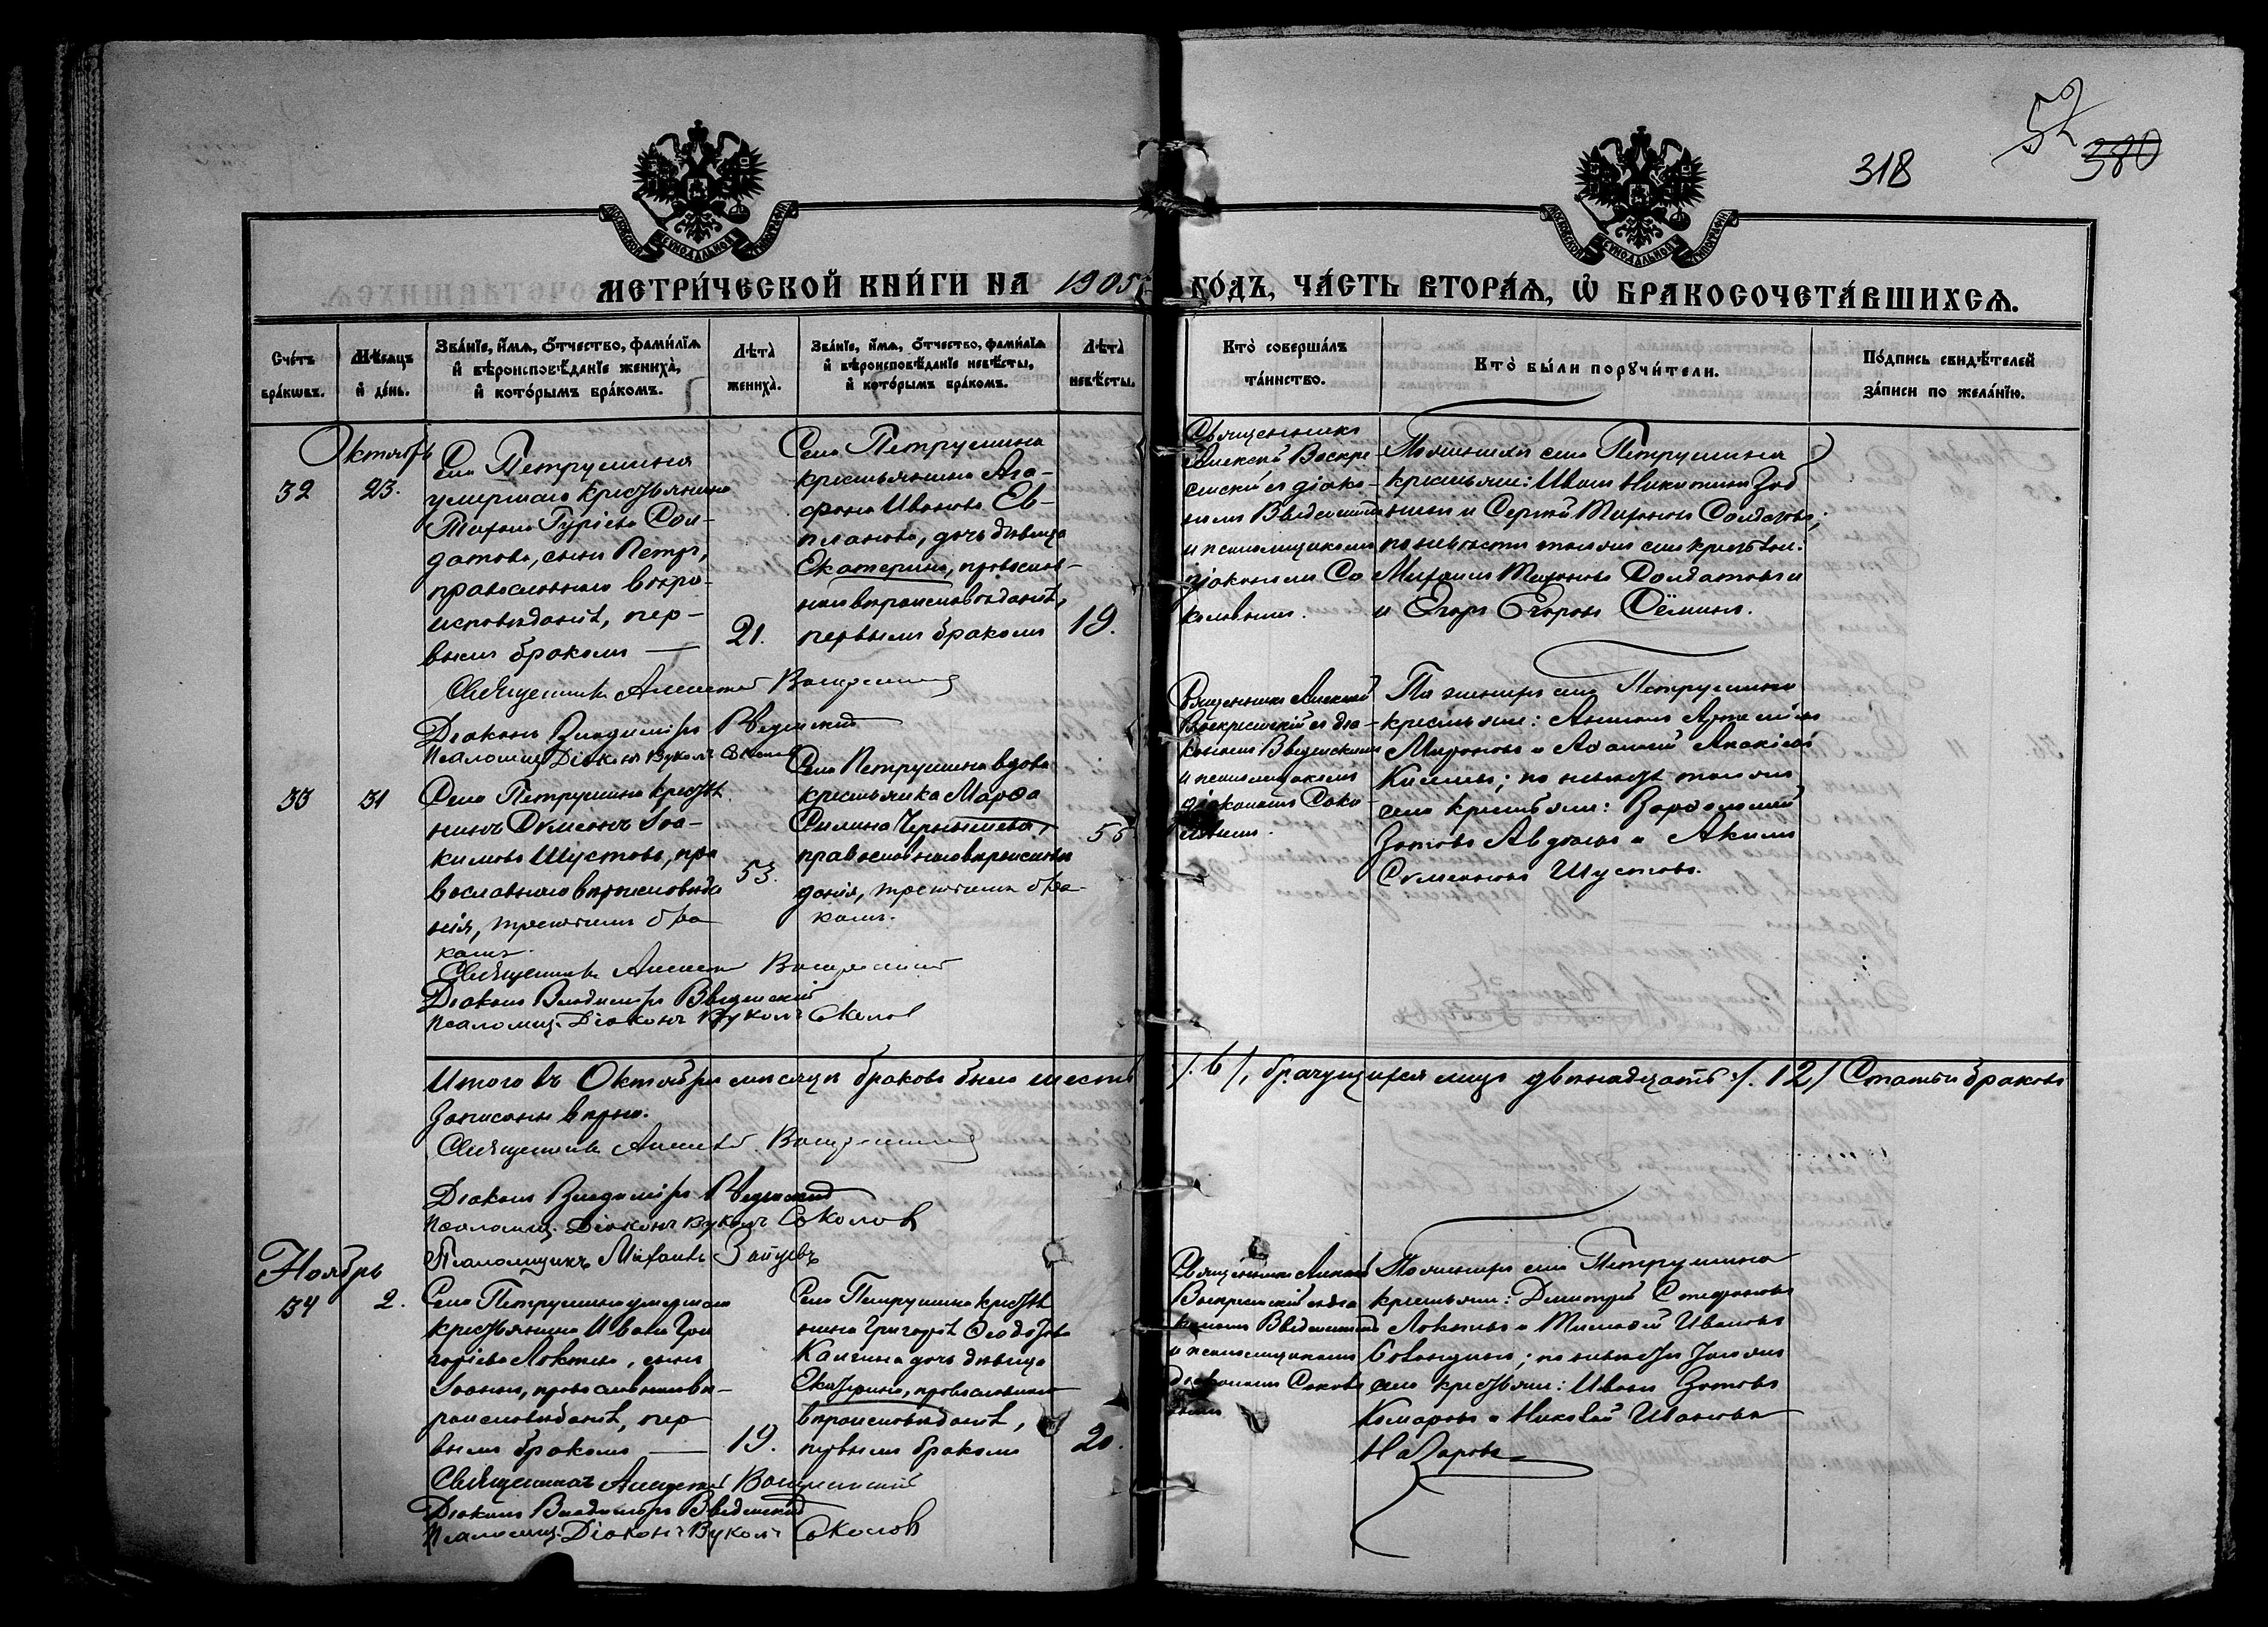 318
52
380
МОСКОВСКОЙ СѴНОДАЛЬНОЙ ТИПОГРАФІИ.
МОСКОВСКОЙ СѴНОДАЛЬНОЙ ТИПОГРАФІИ.
МЕТРИ́ЧЕСКОЙ КНИ́ГИ НА 1905 ГО́ДЪ, ЧА́СТЬ ВТОРА́Ѧ, Ѡ҆ БРАКОСОЧЕТА́ВШИХСѦ.
Сче́тъ бра́кѡвъ.
Мѣ́сяцъ и҆ де́нь.
Зва́нїе, и҆́мѧ, ѻ҆́тчество, фами́лїѧ
и҆ вѣроисповѣ́данїе жениха̀,
и҆ кото́рымъ бра́комъ.
Лѣта̀ жениха̀.
Зва́нїе, и҆́мѧ, ѻ҆́тчество, фами́лїѧ
и҆ вѣроисповѣ́данїе невѣ́сты,
и҆ кото́рымъ бра́комъ.
Лѣта̀ невѣ́сты.
Кто̀ соверша́лъ
та́инство.
Кто̀ бы́ли порꙋчи́тели.
По́дпись свидѣ́телей
за́писи по жела́нїю.
Октябрь
32
23.
Села Петрушина
умершаго крестьянина
Тихона Гуріева Сол-
датова, сынъ Петръ,
православнаго вѣро-
исповѣданія, пер-
вымъ бракомъ —
21.
Села Петрушина
крестьянина Ага-
фона Иванова Ев-
планова, дочь дѣвица
Екатерина, православ-
наго вѣроисповѣданія,
первымъ бракомъ
19.
Священникъ
Алексій Воскре-
сенскій съ діако-
номъ Введенскимъ
и псаломщикомъ
діакономъ Со
коловымъ.
По женихѣ села Петрушина
крестьяне: Иванъ Никитинъ Зоб
нинъ и Сергѣй Тихоновъ Солдатовъ;
по невѣстѣ того же села крестьяне
Михаилъ Тихоновъ Солдатовъ и
и Егоръ Егоровъ Дёминъ.
Священникъ Алексій Воскресенскій
Діаконъ Владиміръ Введенскій
Псаломщ. Діаконъ Вуколъ Соколовъ
33
31
Села Петрушина крестья
нинъ Сѵмеонъ Іоа-
кимовъ Шустовъ, пра
вославнаго вѣроисповѣда
нія, третьимъ бра
комъ.
53.
Села Петрушина вдова
крестьянка Марѳа
Силина Чернышева,
православнаго вѣроисповѣ
данія, третьимъ бра-
комъ.
55
Священникъ Алексій
Воскресенскій съ діа-
кономъ Введенскимъ
и псаломщикомъ
діакономъ Соко
ловымъ.
По женихѣ села Петрушина
крестьяне: Антонъ Артемьевъ
Мироновъ и Аѳанасій Акакіевъ
; по невѣстѣ того же
села крестьяне: Варѳоломей
Зотовъ Авдонинъ и Акимъ
Сѵмеоновъ Шустовъ.
Священникъ Алексій Воскресенскій
Діаконъ Владиміръ Введенскій
Псаломщ. Діаконъ Вуколъ Соколовъ
Итого въ Октябрѣ мѣсяцѣ браковъ было шесть /. 6 /, брачущихся лицъ двѣнадцать /. 12 / Статьи браковъ
записаны вѣрно.
Священникъ Алексій Воскресенскій
Діаконъ Владиміръ Введенскій
Псаломщ. Діаконъ Вуколъ Соколовъ
Псаломщикъ Михаилъ Зайцевъ
Ноябрь
34
2.
Села Петрушина умершаго
крестьянина Ивана Гри
горіева Локтева, сынъ
Іоаннъ, православнаго вѣ-
роисповѣданія, пер
вымъ бракомъ —
19.
Села Петрушина крестья
нина Григорія Ѳеодорова
Калгина дочь дѣвица
Екатерина, православнаго
вѣроисповѣданія,
первымъ бракомъ
20.
Священникъ Алексій
Воскресенскій съ діа
кономъ Введенскимъ
и псаломщикомъ
діакономъ Соколо
вымъ
По женихѣ села Петрушина
крестьяне: Димитрій Стефановъ
Локтевъ и Тимоѳей Ивановъ
; по невѣстѣ того же
села крестьяне: Иванъ Зотовъ
Комаровъ и Николай Ивановъ
Назаровъ
Священникъ Алексій Воскресенскій
Діаконъ Владиміръ Введенскій
Псаломщ. Діаконъ Вуколъ Соколовъ